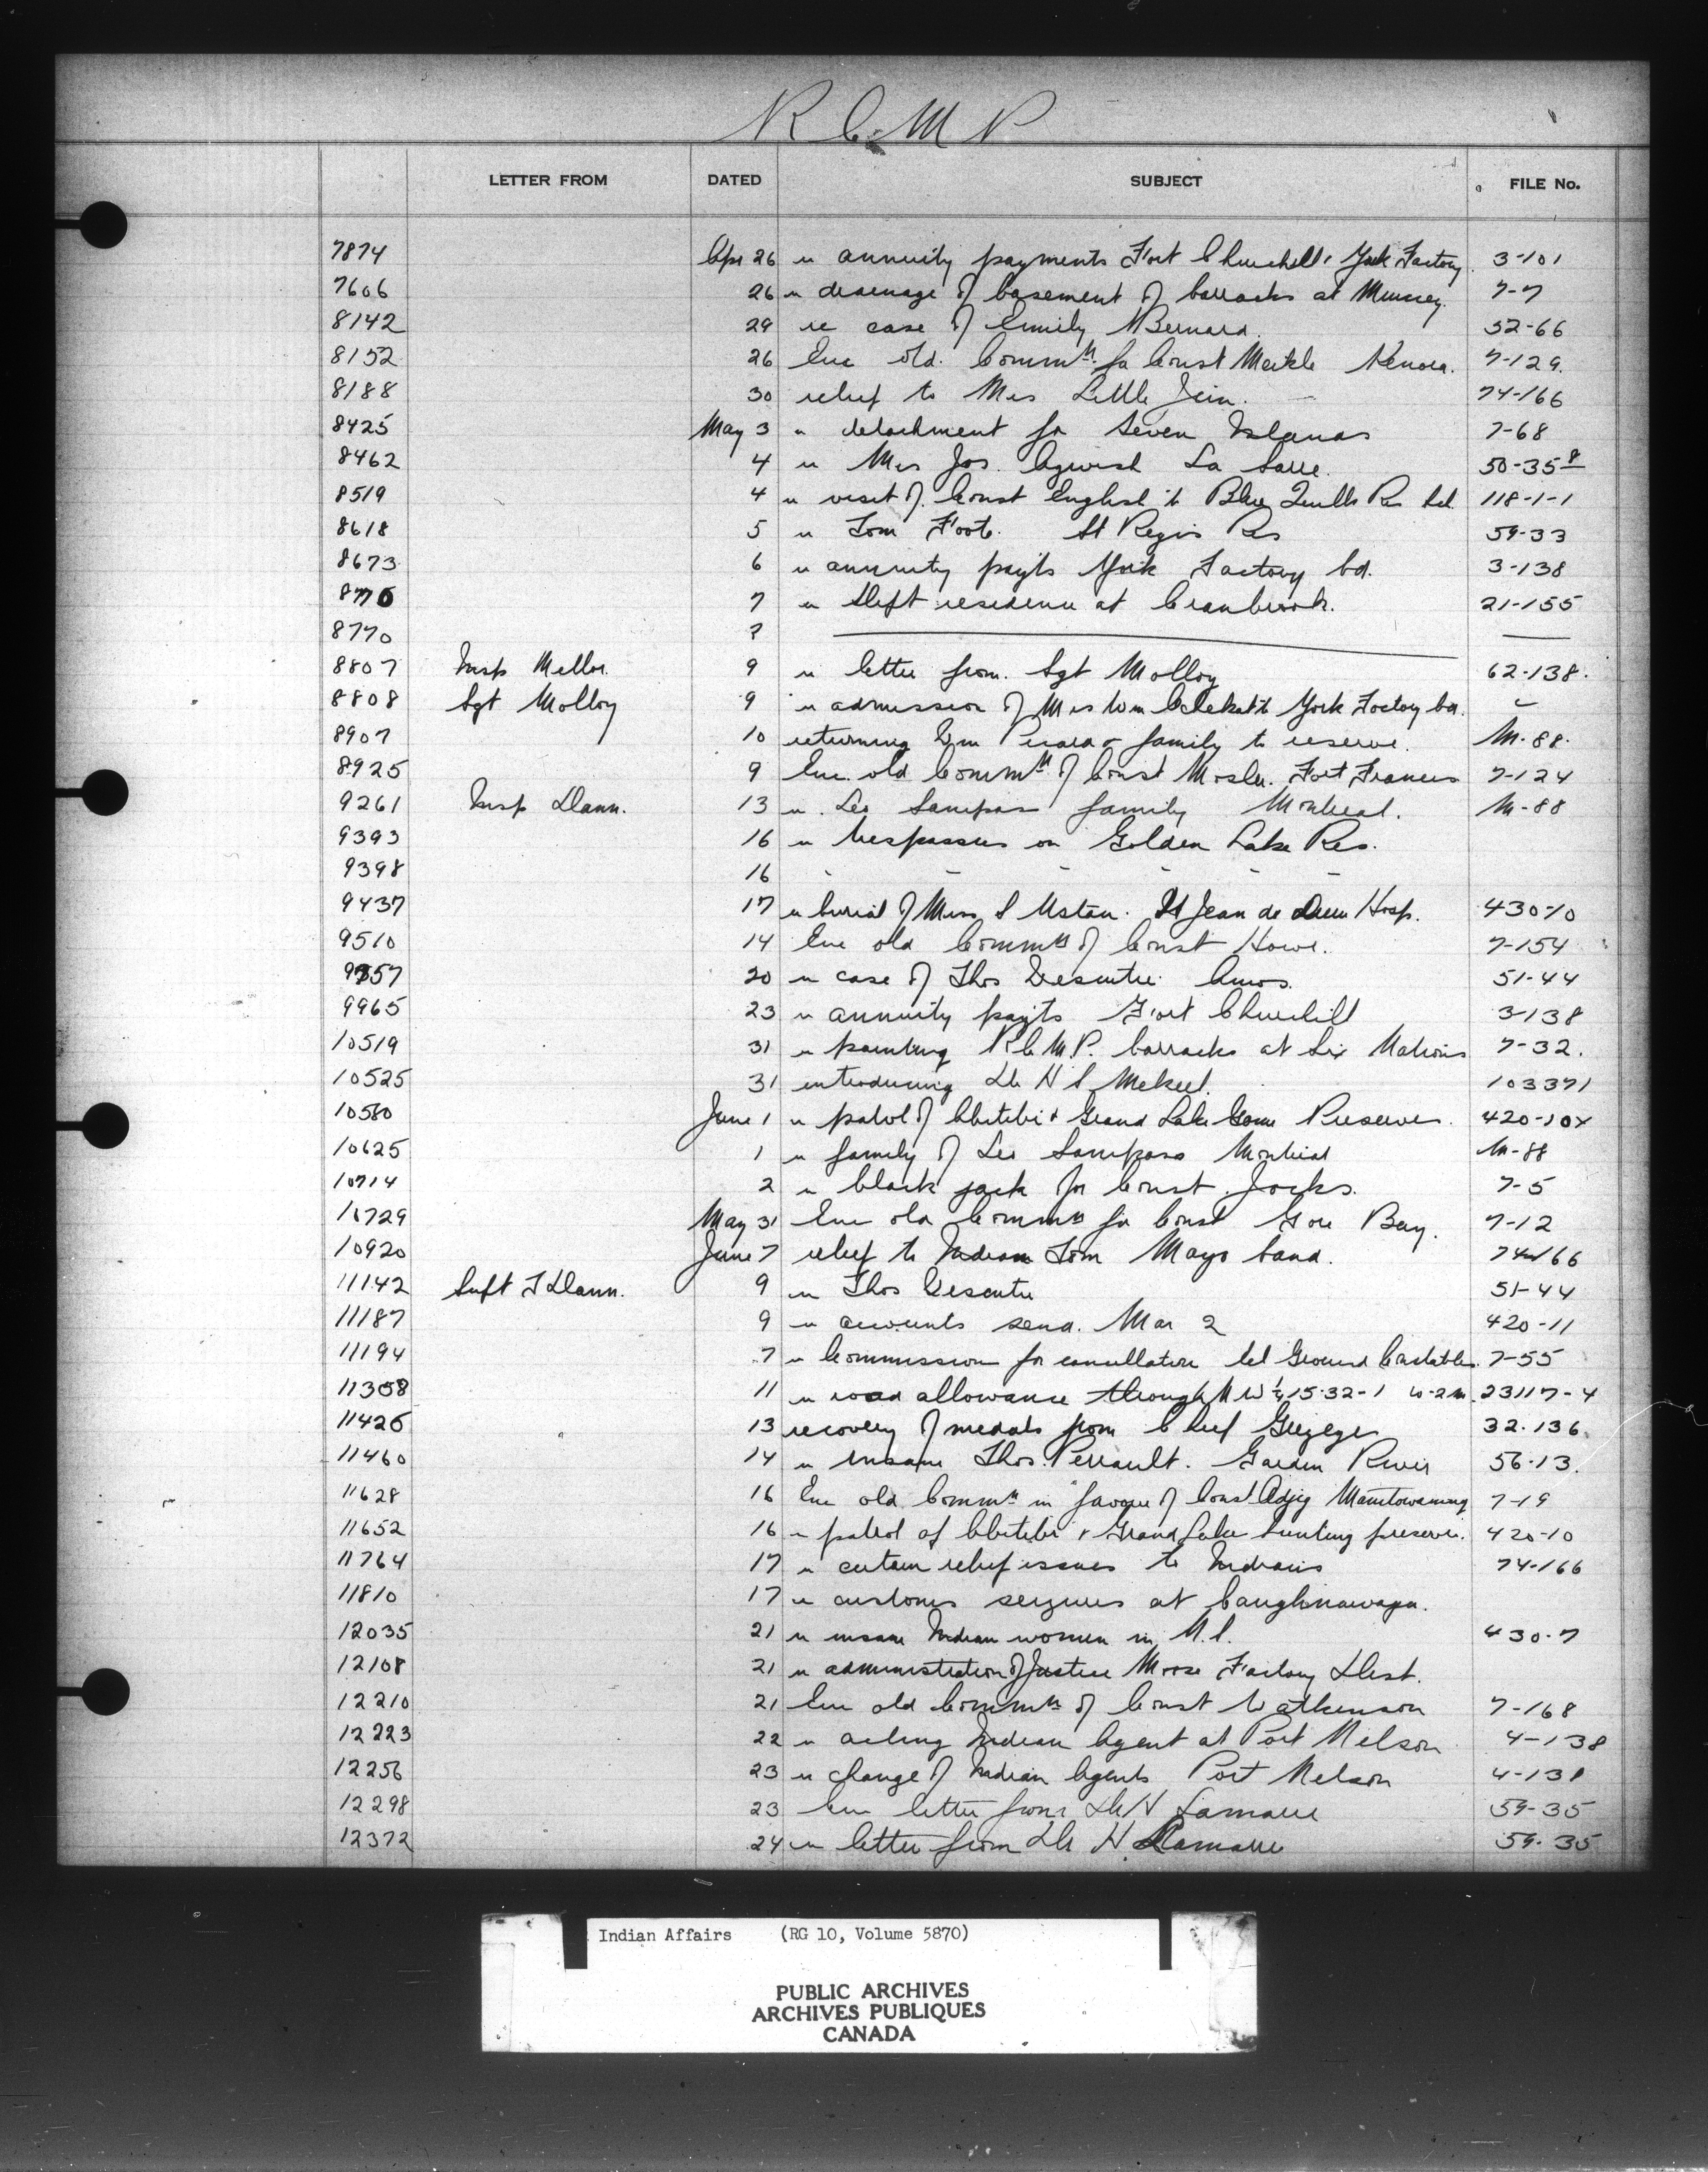 R C M P
LETTER FROM DATED SUBJECT FILE No.
7874 Apr 26 re annuity payments Fort Churchill & York Factory. 3-101
7606 26 re drainage of basement of barracks at Muncey. 7-7
8142 29 re case of Emily Bernard. 52-66
8152 26 Enc old Commn for Const Meikle Kenora. 7-129.
8188 30 relief to Mrs Little Jim. 74-166
8425 May 3 re detachment for Seven Islands 7-68
8462 4 re Mrs Jos. La Sarre. 50-35 8
8519 4 re visit of Const English to Blue Quills Res Scl. 118-1-1
8618 5 re Tom Foote. St Regis Res 59-33
8673 6 re annuity payts York Factory bd. 3-138
8776 7 re theft residence at Cranbrook. 21-155
8770 ?
8807 Insp Mellor. 9 re letter from Sgt Molloy 62-138.
8808 Sgt Molloy 9 re admission of Mrs Wm to York Factory bd.
8907 10 returning Wm & family to reserve. M-88.
8925 9 Enc. old Commn of Const Mosher. Fort Frances 7-124
9261 Insp Dann. 13 re Leo family Montreal. M-88
9393 16 re trespassers on Golden Lake Res.
9398 16 - - - - -
9437 17 re burial of Miss S St Jean de Dieu Hosp. 430-10
9510 14 Enc old Commn of Const Howe. 7-154
9857 20 re case of Thos Amos. 51-44
9965 23 re annuity payts Fort Churchill 3-138
10519 31 re painting R.C.M.P. barracks at Six Nations 7-32.
10525 31 introducing Dr H S Mekeel. 103371
10560 June 1 re patrol of Abitibi & Grand Lake Game Preserves. 420-10x
10625 1 re family of Leo Montreal M-88
10714 2 re black jack for Const. Jocks. 7-5
10729 May 31 Enc old Commn for Const Gore Bay. 7-12
10920 June 7 relief to Indian Tom Mayo band. 74-166
11142 Supt T Dann. 9 re Thos 51-44
11187 9 re accounts send. Mar 2 420-11
11194 7 re Commission for cancellation Ground Constables. 7-55
11358 11 re road allowance through N W ¼ 15-32-1 W-2M. 23117-4
11426 13 recovery of medals from Chief 32.136
11460 14 re insane Thos. Perrault. Garden River 56-13.
11628 16 Enc old Commn in favour of Const Adjig Manitowaning 7-19
11652 16 re patrol of Abitibi & Grand Lake hunting preserve. 420-10
11764 17 re certain relief issues to Indians 74-166
11810 17 re customs seizures at Caughnawaga.
12035 21 re insane Indian women in N.S. 430-7
12108 21 re administration of Justice Moose Factory Dist.
12210 21 Enc old Commn of Const Watkinson 7-168
12223 22 re acting Indian Agent at Port Nelson 4-138
12256 23 re change of Indian Agents Port Nelson 4-138
12298 23 Enc letter from Dr H Lamarre 59-35
12372 24 re letter from Dr H. Lamarre 59-35
Indian Affairs (RG 10, Volume 5870)
PUBLIC ARCHIVES
ARCHIVES PUBLIQUES
CANADA